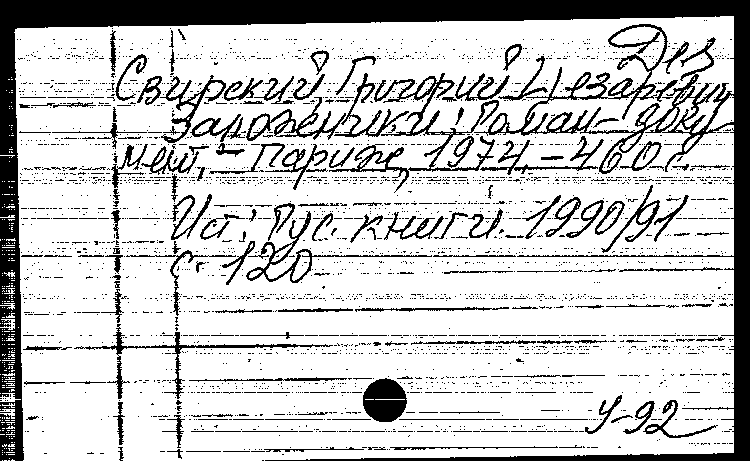 Дез
Свирский, Григорий Цезаревич
Заложники: Роман-доку-
мент, - Париж, 1974. - 460 с.
Ист: Рус. книги. 1990/91
с. 120
У-92